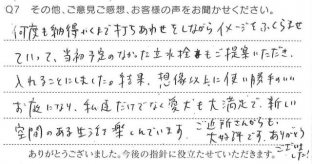 Q7 その他、ご意見ご感想、お客様の声をお聞かせください。
何度も納得がいくまで打ちあわせをしながらイメージをふくらませ
ていって、当初予定のなかった立水栓もご提案いただき、
入れることにしました。結果、想像以上に使い勝手のいい
お庭になり、私達だけでなく愛犬も大満足で、新しい
空間のある生活を楽しんでいます。ご近所さんからも
大好評です。ありがとう
ございました!
ありがとうございました。今後の指針に役立たせていただきます。